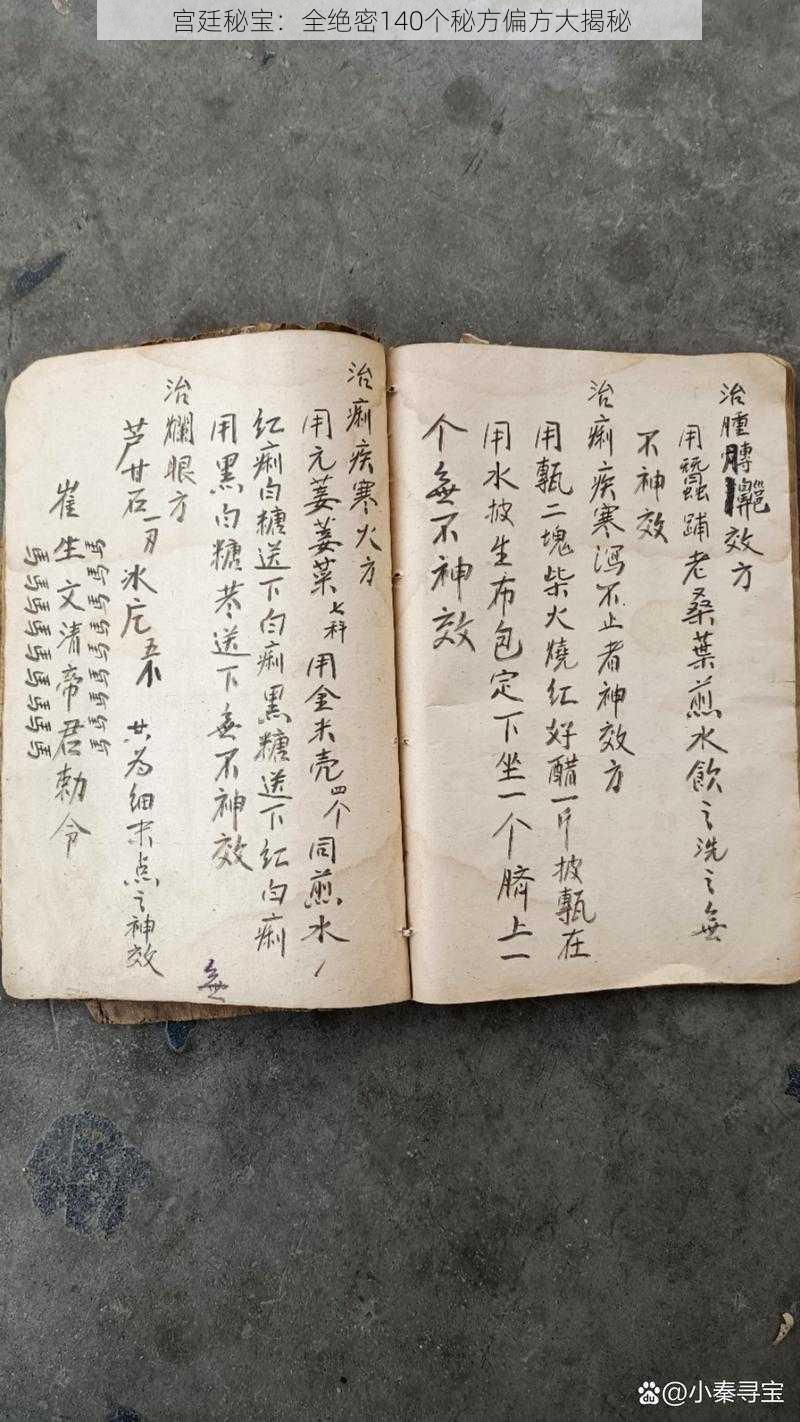 宫廷秘宝：全绝密140个秘方偏方大揭秘
治腫膊效方
用蠶蹄老桑葉煎水飲之洗之無
不神效
治痢疾寒泻不止者神效方
用甎二塊柴火燒红好醋一斤披甎在
用水披生布包定下坐一个臍上一
个無不神效
治痢疾寒火方
用元荽荽菜七科用金米壳四个同煎水
红痢白糖送下白痢黑糖送下红白痢
用黑白糖送下無不神效
無
治爛眼方
芦甘石一刃冰片共为细末点之神效
馬馬馬馬馬馬馬馬
崔生文清帝君勅令
馬馬馬馬馬馬馬馬馬
@小秦寻宝